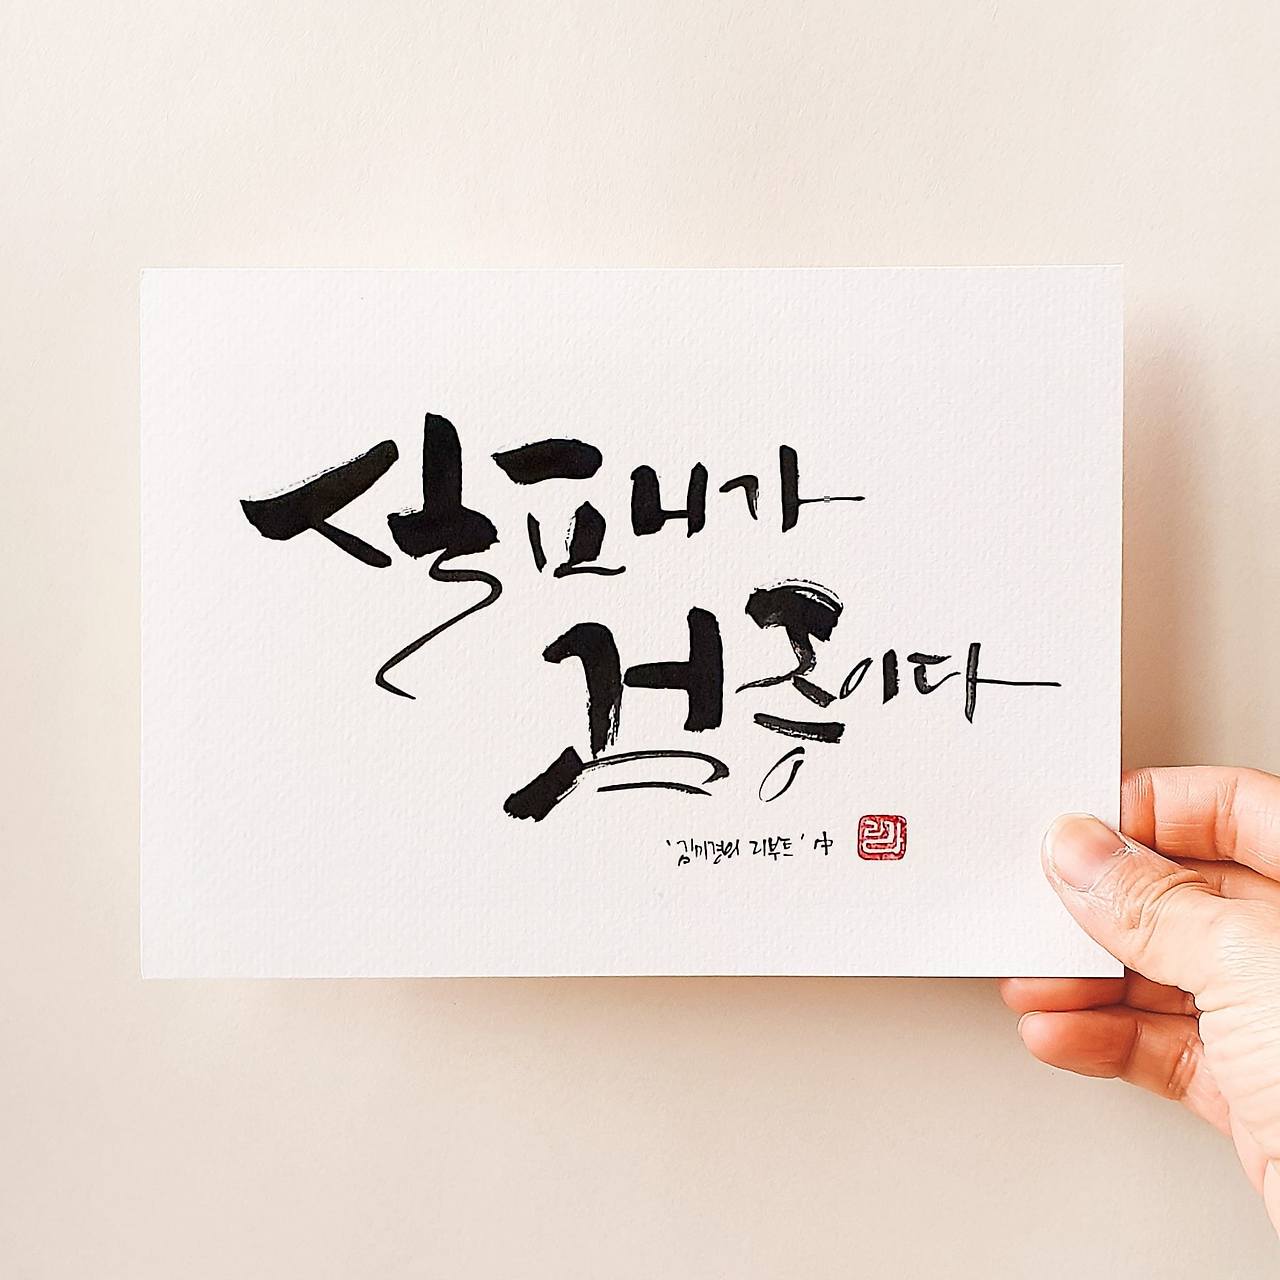 실패가
검증이다
'김미경의 리부트' 中